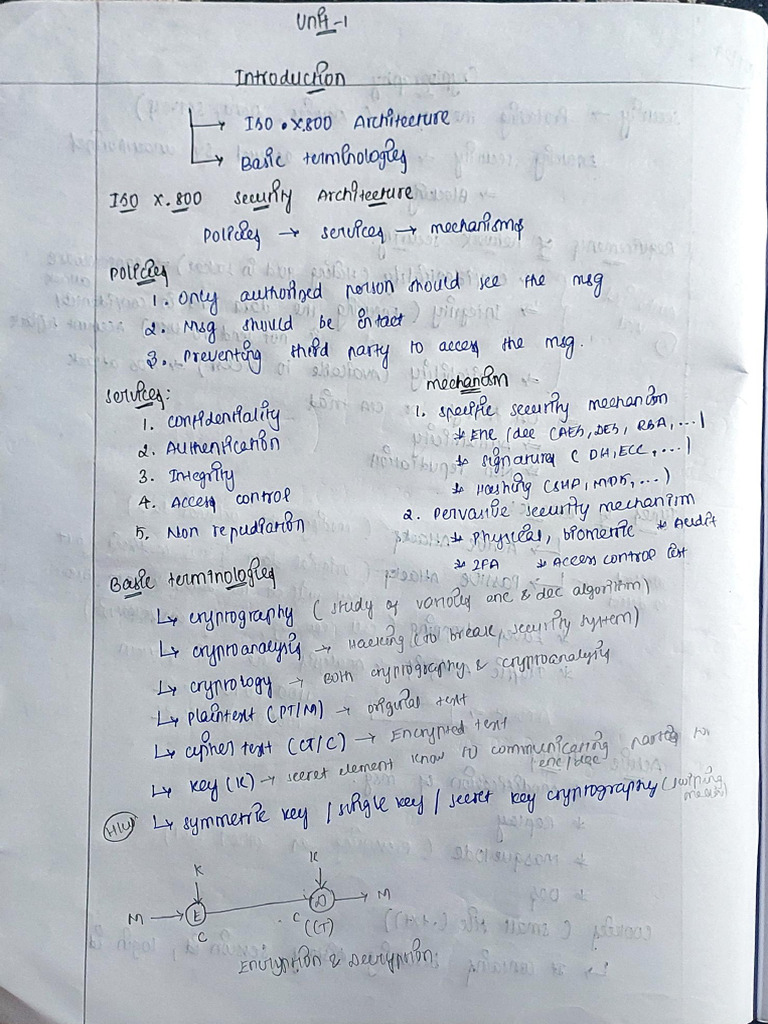 Unit-1
Introduction
→ ISO • X.800 Architecture
→ Basic terminologies
ISO X.800 Security Architecture
Policies → services → mechanisms
Policies
1. Only authorized person should see the msg
2. Msg should be intact.
3. Preventing third party to access the msg.
services:
1. Confidentiality
2. Authentication
3. Integrity
4. Access control
5. Non repudiation
mechanism
1. Specific security mechanism
* Enc/dec (AES, DES, RSA, ...)
* Signatures ( DH, ECC, ...)
* Hashing (SHA, MD5, ...)
2. Pervasive security mechanism
* Physical, biometric * Audit
* 2FA * Access control list
Basic terminologies
↳ cryptography (study of various enc & dec algorithm)
↳ cryptoanalysis → Hacking (to break security system)
↳ cryptology → Both cryptography & cryptoanalysis
↳ plaintext (PT/M) → original text
↳ cipher text (CT/C) → Encrypted text
↳ key (K) → secret element know to communicating parties to enc/dec
↳ symmetric key / single key / secret key cryptography
K
K
M → E → D → M
C
C
(CT)
Encryption & Decryption